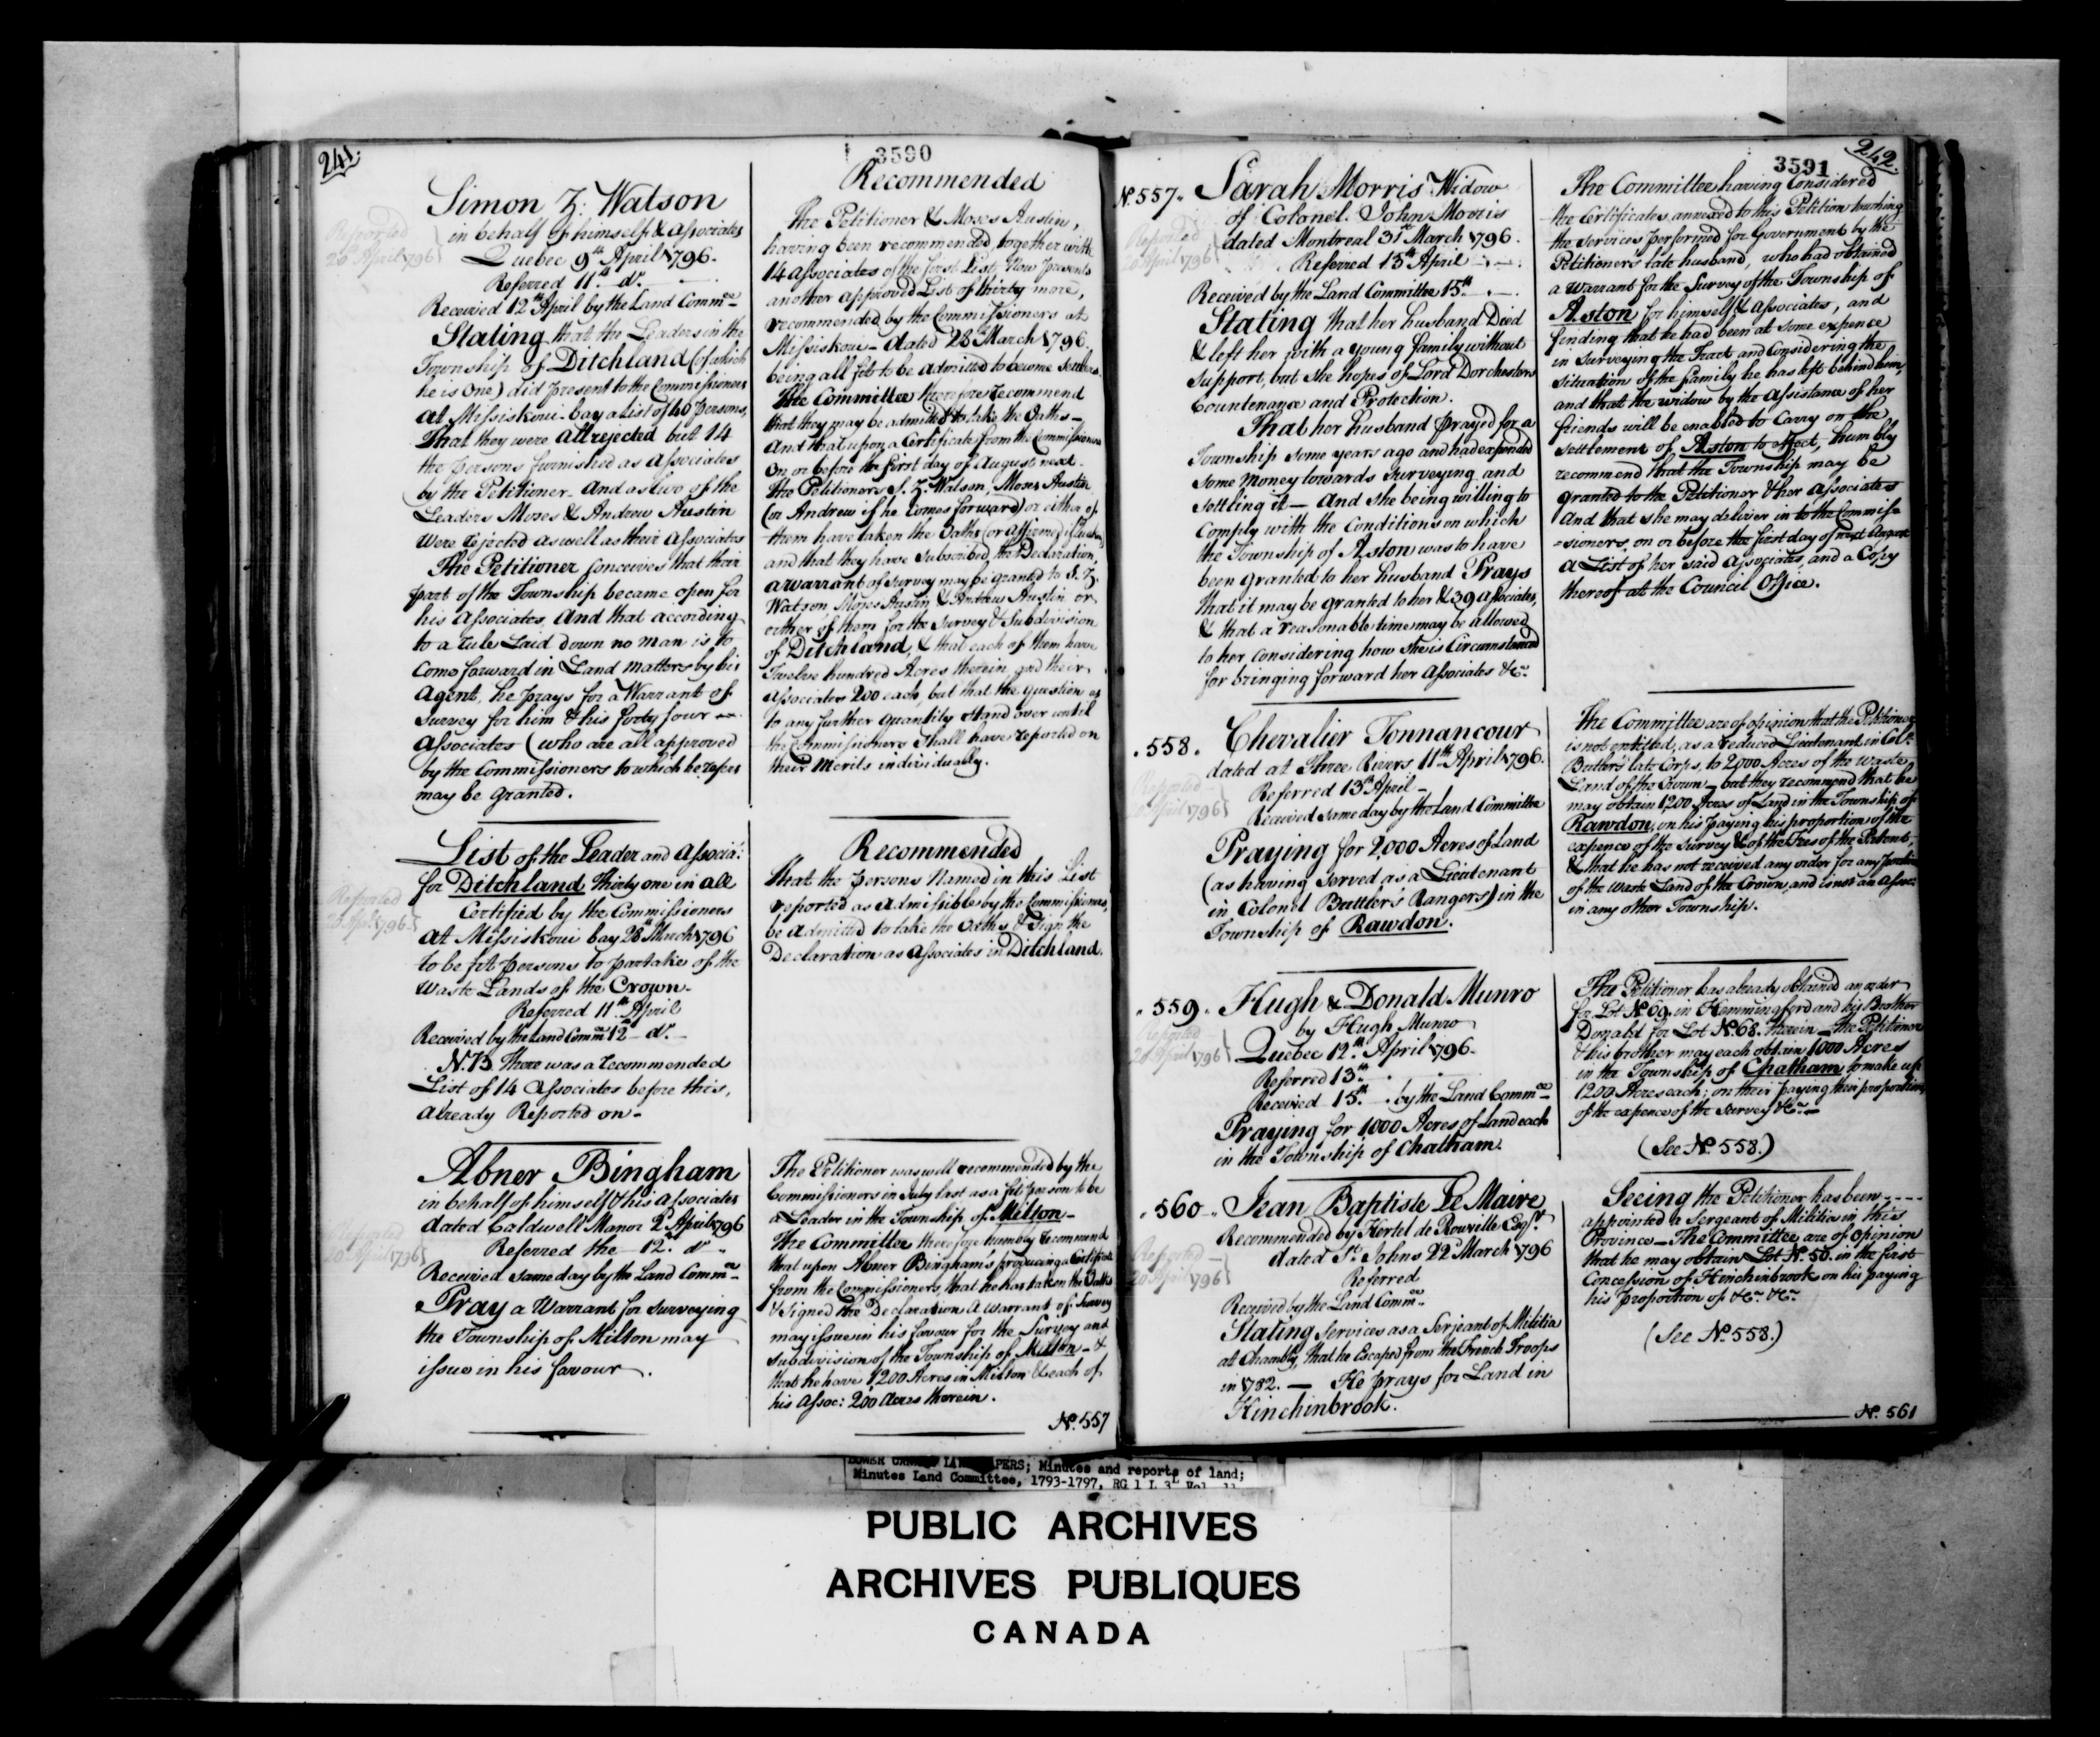 241.
3590
Simon Z. Watson
in behalf of himself & associates
Quebec 9th April 1796.
Referred 11th do.
Received 12th April by the Land Commee
Stating that the Leaders in the
Township of Ditchland (of which
he is One) did present to the Commissioners
at Missiskoui-bay a list of 40 persons,
That they were all rejected but 14
the persons furnished as associates
by the Petitioner. And as two of the
Leaders Moses & Andrew Austin
were rejected as well as their associates
The Petitioner conceives that their
part of the Township became open for
his associates, And that according
to a rule Laid down no man is to
come forward in Land matters by his
Agent, he prays for a Warrant of
Survey for him & his forty four
Associates (who are all approved
by the Commissioners to which he refers
may be granted.
Reported
20 April 1796
Recommended
The Petitioner & Moses Austin,
having been recommended together with
14 associates of the first List, Now presents
another approved List of thirty more,
recommended by the Commissioners at
Missiskoui - dated 28th March 1796
being all fit to be admitted to become settlers.
The Committee therefore recommend
that they may be admitted to take the Oaths -
And that upon a Certificate from the Commissioners
On or before the first day of August next.
The Petitioners S. Z. Watson, Moses Austin
(or Andrew if he comes forward) or either of
them have taken the Oaths (or affirmed if
and that they have subscribed the Declaration,
a warrant of Survey may be granted to S. Z.
Watson Moses Austin & Andrew Austin or
either of them for the Survey & Subdivision
of Ditchland, & that each of them have
Twelve hundred Acres therein, and their
Associates 200 each, but that the question as
to any further quantity stand over until
the Commissioners shall have reported on
their merits individually.
List of the Leader and Associa:
for Ditchland Thirty one in all
Certified by the Commissioners
at Missiskoui bay 28th March 1796
to be fit persons to partake of the
waste Lands of the Crown.
Referred 11th April
Received by the Land Commee 12 do.
N.B. There was a recommended
List of 14 Associates before this,
already Reported on -
Reported
20 April 1796
Recommended
That the persons Named in this List
reported as admissible by the Commissioners,
be admitted to take the Oaths & Sign the
Declaration as Associates in Ditchland.
Abner Bingham
in behalf of himself & his associates
dated Caldwell's Manor 2d April 1796
Referred the 12th do.
Received same day by the Land Commee
Pray a Warrant for surveying
the Township of Milton may
issue in his favour.
Reported
20 April 1796
The Petitioner was well recommended by the
Commissioners in July last as a fit person to be
a Leader in the Township of Milton -
The Committee therefore humbly recommend
that upon Abner Bingham's producing a Certificate
from the Commissioners, that he has taken the Oaths
& Signed the Declaration A warrant of Survey
may issue in his favour for the Survey and
subdivision of the Township of Milton - &
that he have 1200 Acres in Milton & each of
his Assoc: 200 Acres therein.
No. 557
242.
3591
No. 557. Sarah Morris Widow
of Colonel John Morris
dated Montreal 31st March 1796.
Referred 13th April
Received by the Land Committee 15th
Stating that her husband Died
& left her with a young family without
support, but she hopes of Lord Dorchesters
Countenance and Protection.
That her husband prayed for a
Township some years ago and had expended
some money towards surveying and
settling it - And she being willing to
comply with the Conditions on which
the Township of Aston was to have
been granted to her husband Prays
that it may be granted to her & 39 associates,
& that a reasonable time may be allowed
to her considering how she is Circumstanced
for bringing forward her Associates &ca.
Reported
20 April 1796
The Committee having Considered
the Certificates annexed to this Petition touching
the services performed for Government by the
Petitioner's late husband, who had obtained
a warrant for the Survey of the Township of
Aston for himself & associates, and
finding that he had been at some expence
in surveying the Tract and Considering the
situation of the family he has left behind him,
and that the widow by the assistance of her
friends will be enabled to Carry on the
settlement of Aston to effect, humbly
recommend that the Township may be
granted to the Petitioner & her associates
And that she may deliver in to the Commis=
=sioners, on or before the first day of next August
a List of her said Associates, and a Copy
thereof at the Council Office.
.558. Chevalier Tonnancour
dated at Three Rivers 11th April 1796.
Referred 13th April -
Received same day by the Land Committee
Praying for 2,000 Acres of Land
(as having served as a Lieutenant
in Colonel Buttler's Rangers) in the
Township of Rawdon.
Reported
20 April 1796
The Committee are of opinion that the Petitioner
is not entitled, as a reduced Lieutenant in Coll.
Butler's late Corps, to 2000 Acres of the waste
Land of the Crown - but they recommend that he
may obtain 1,200 Acres of Land in the Township of
Rawdon, on his paying his proportion of the
expence of the Survey & of the Fees of the Patent,
& that he has not received any order for any portion
of the waste Land of the Crown, and is not an Assoc:
in any other Township.
.559. Hugh & Donald Munro
by Hugh Munro
Quebec 12th April 1796.
Referred 13th
Received 15th. by the Land Commee
Praying for 1,000 Acres of Land each
in the Township of Chatham.
Reported
20 April 1796
The Petitioner has already obtained an order
for Lot No. 69. in Hemmingford and his Brother
Donald for Lot No. 68. therein - the Petitioner
& his brother may each obtain 1000 Acres
in the Township of Chatham to make up
1200 Acres each; on their paying their proportion
of the expence of the survey &ca. -
(See No. 558.)
.560. Jean Baptiste Le Maire
Recommended by Hertel de Rouville Esqr.
dated St. Johns 22d March 1796
Referred
Received by the Land Commee
Stating services as a Serjeant of Militia
at Chambly, that he Escaped from the French Troops
in 1782. - He prays for Land in
Hinchinbrook.
Reported
20 April 1796
Seeing the Petitioner has been
appointed a Sergeant of Militia in this
Province - The Committee are of opinion
that he may obtain Lot No. 50. in the first
Concession of Hinchinbrook on his paying
his proportion of &ca. &ca.
(See No. 558.)
No. 561
LOWER CANADA LAND PAPERS; Minutes and reports of land;
Minutes Land Committee, 1793-1797, RG 1 L 3L Vol. 11
PUBLIC ARCHIVES
ARCHIVES PUBLIQUES
CANADA